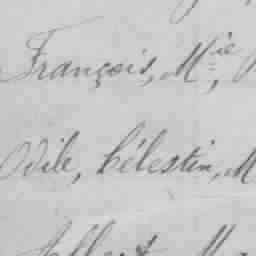 François, Mie,
Odile, Célestin, M